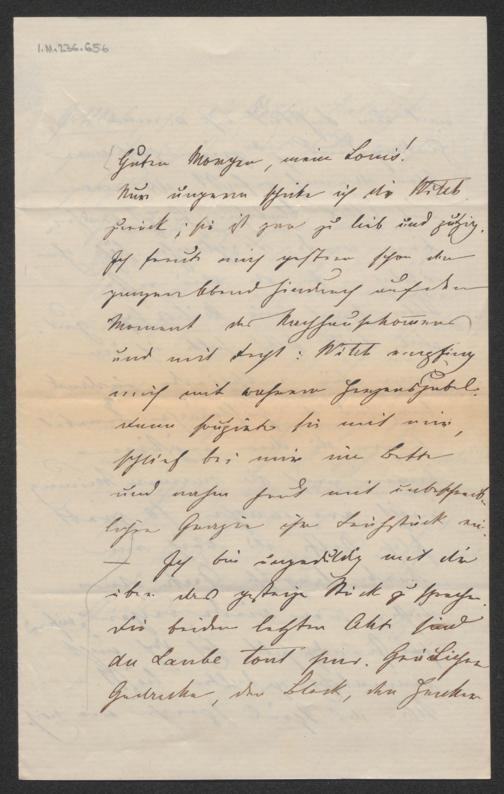 I.N.236.656
Guten Morgen, mein Louis!
Nur ungern schicke ich dir Witch
zurück; sie ist gar zu lieb und putzig.
Ich freute mich gestern schon den
ganzen Abend hindurch auf den
Moment des Nachhausekommens
und mit Recht: Witch empfing
mich mit wahrem Herzensjubel.
dann soupirte sie mit mir,
schlief bei mir im Bette
und nahm heut mit unbeschreib-
licher Grazie ihr Frühstück ein.
Ich bin ungeduldig mit dir
über das gestrige Stück zu sprechen.
die beiden letzten Akte sind
du Laube tout pur.
Gedecke, der Block, den